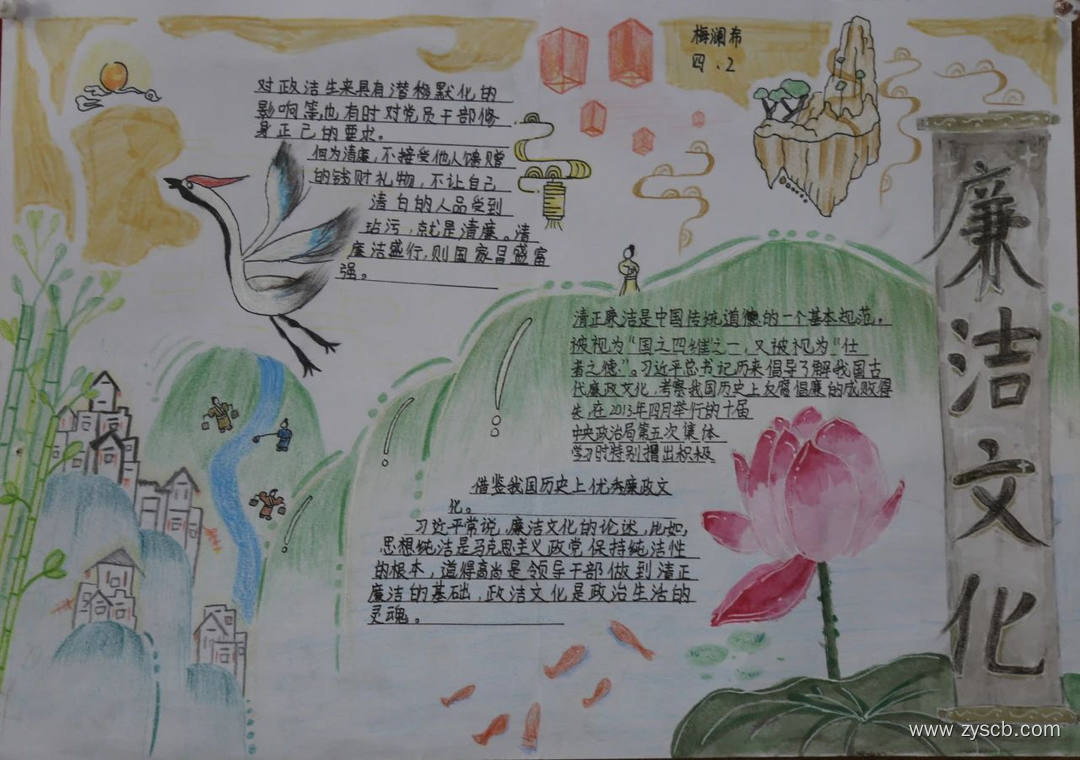 梅澜希
四.2
廉洁文化
对政洁生来具有潜移默化的
影响等也有时对党员干部修
身正己的要求。
何为清廉,不接受他人馈赠
的钱财礼物,不让自己
清白的人品受到
玷污,就是清廉。清
廉洁盛行,则国家昌盛富
强。
清正廉洁是中国传统道德的一个基本规范。
被视为“国之四维之一,又被视为“仕
者之德”。习近平总书记历来倡导了解我国古
代廉政文化,考察我国历史上反腐倡廉的成败得
失,在2013年四月举行的十届
中央政治局第五次集体
学习时特别指出积极
借鉴我国历史上优秀廉政文
化。
习近平常说,廉洁文化的论述,比如,
思想纯洁是马克思主义政党保持纯洁性
的根本,道得高尚是领导干部做到清正
廉洁的基础,政洁文化是政治生活的
灵魂。
www.zyscb.com